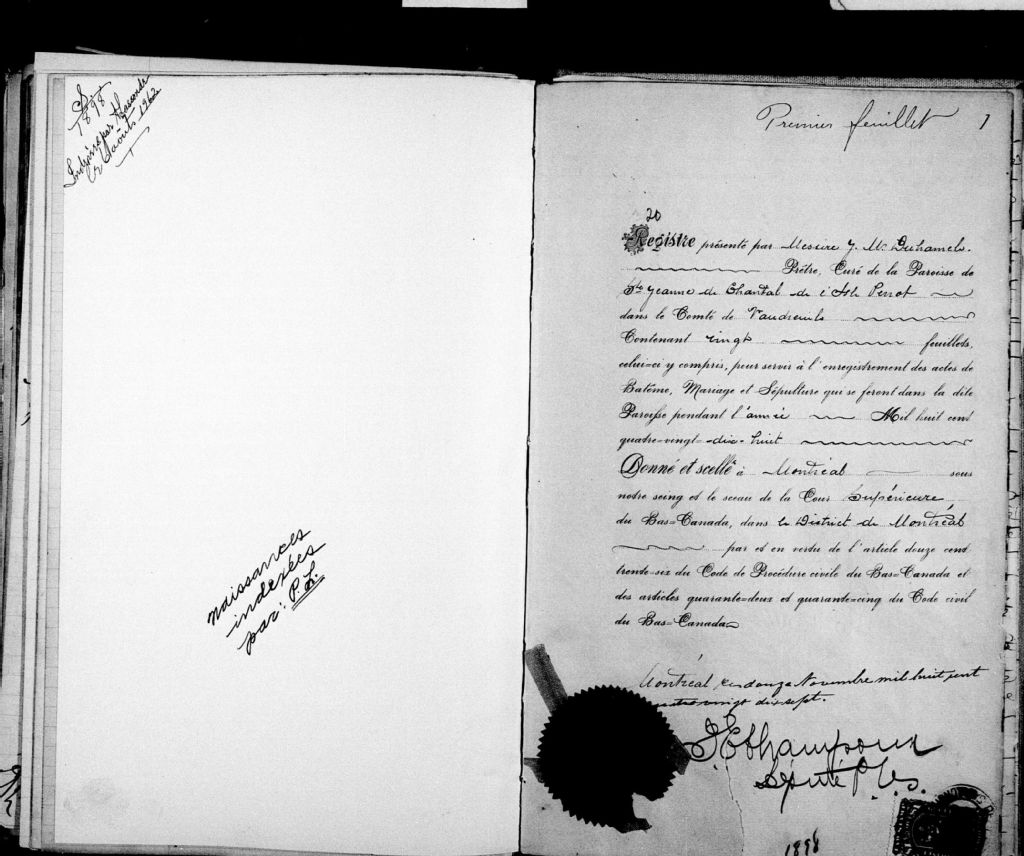 1898
par
le août 1962
naissances
indexées
par: P. L.
Premier feuillet 1
20
Registre présenté par Messire J. Ms Duhamel.
Prêtre, Curé de la Paroisse de
Ste Jeanne de Chantal de l'Isle Perrot
dans le Comté de Vaudreuil
Contenant vingt feuillets,
celui=ci y compris, pour servir à l'enregistrement des actes de
Batême, Mariage et Sépulture qui se feront dans la dite
Paroisse pendant l'année Mil huit cent
quatre-vingt-dix-huit
Donné et scellé à Montréal sous
notre seing et le sceau de la Cour Supérieure
du Bas=Canada, dans le District de Montréal
par et en vertu de l'article douze cent
trente=six du Code de Procédure civile du Bas=Canada et
des articles quarante=deux et quarante=cinq du Code civil
du Bas=Canada
Montréal ce douze Novembre mil huit cent
quatre vingt dix sept.
Député P. C. S.
1898